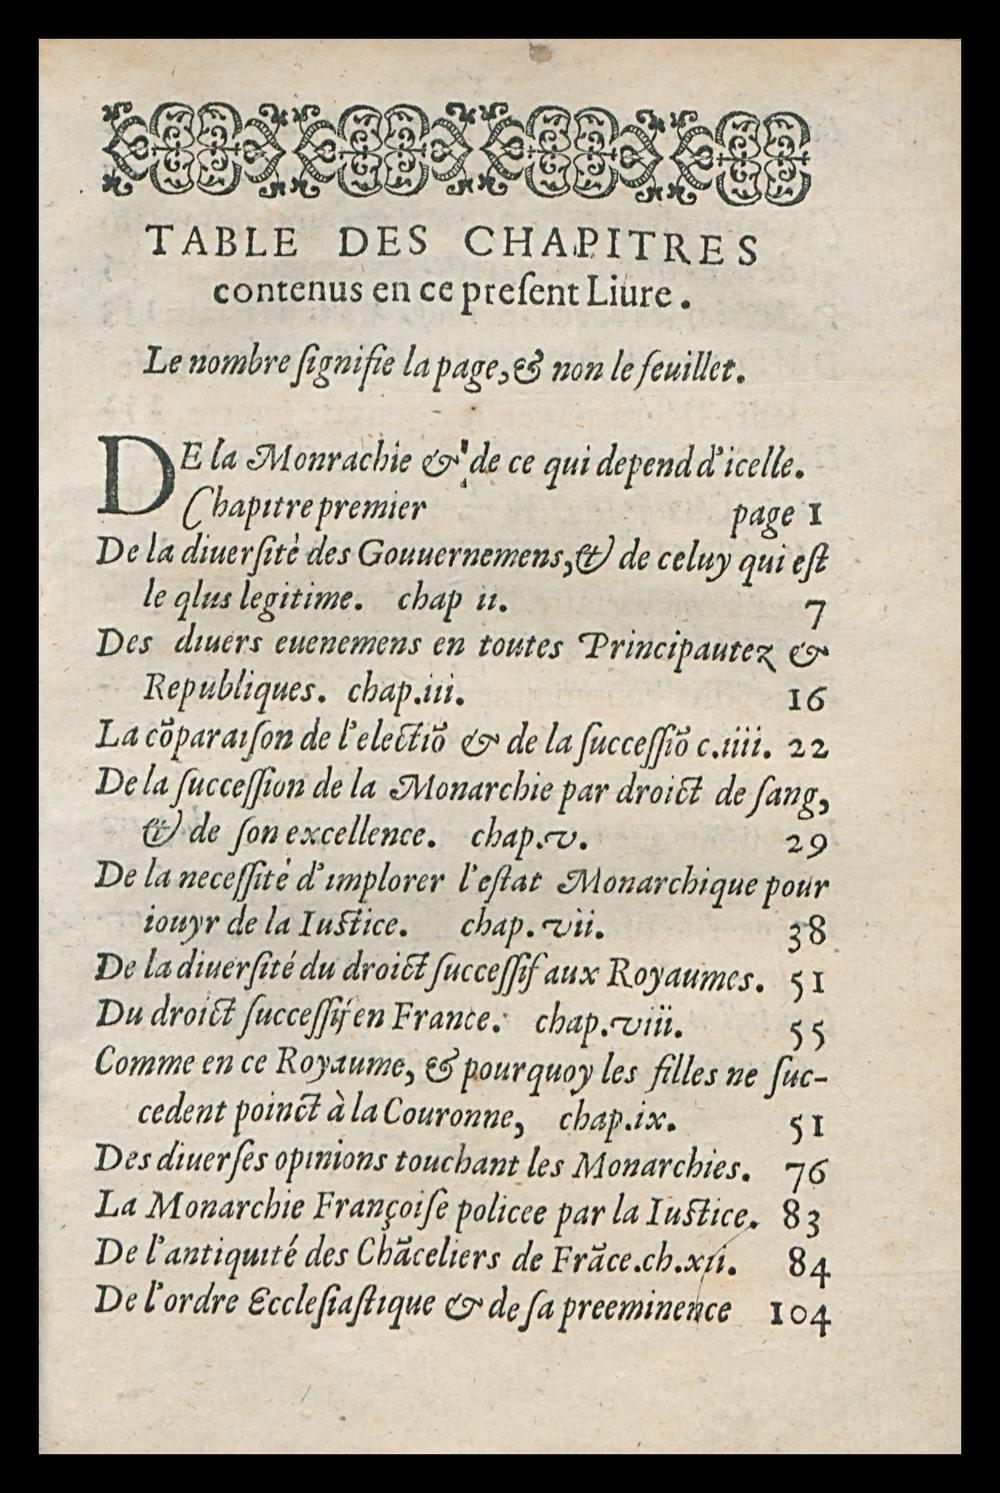 TABLE DES CHAPITRES
contenus en ce preſent Liure.
Le nombre ſignifie la page, & non le feuillet.
DE la Monrachie & de ce qui depend d'icelle.
Chapitre premier page 1
De la diuerſité des Gouuernemens, & de celuy qui eſt
le qlus legitime. chap ii. 7
Des diuers euenemens en toutes Principautez &
Republiques. chap.iii. 16
La cõparaiſon de l'electiõ & de la ſucceſſiõ c.iiii. 22
De la ſucceſſion de la Monarchie par droict de ſang,
& de ſon excellence. chap.v. 29
De la neceſſité d'implorer l'eſtat Monarchique pour
iouyr de la Iuſtice. chap. vii. 38
De la diuerſité du droict ſucceſſif aux Royaumes. 51
Du droict ſucceſſif en France. chap.viii. 55
Comme en ce Royaume, & pourquoy les filles ne ſuc-
cedent poinct à la Couronne, chap.ix. 51
Des diuerſes opinions touchant les Monarchies. 76
La Monarchie Françoiſe policee par la Iuſtice. 83
De l'antiquité des Chãceliers de Frãce.ch.xii. 84
De l'ordre Eccleſiaſtique & de ſa preeminence 104